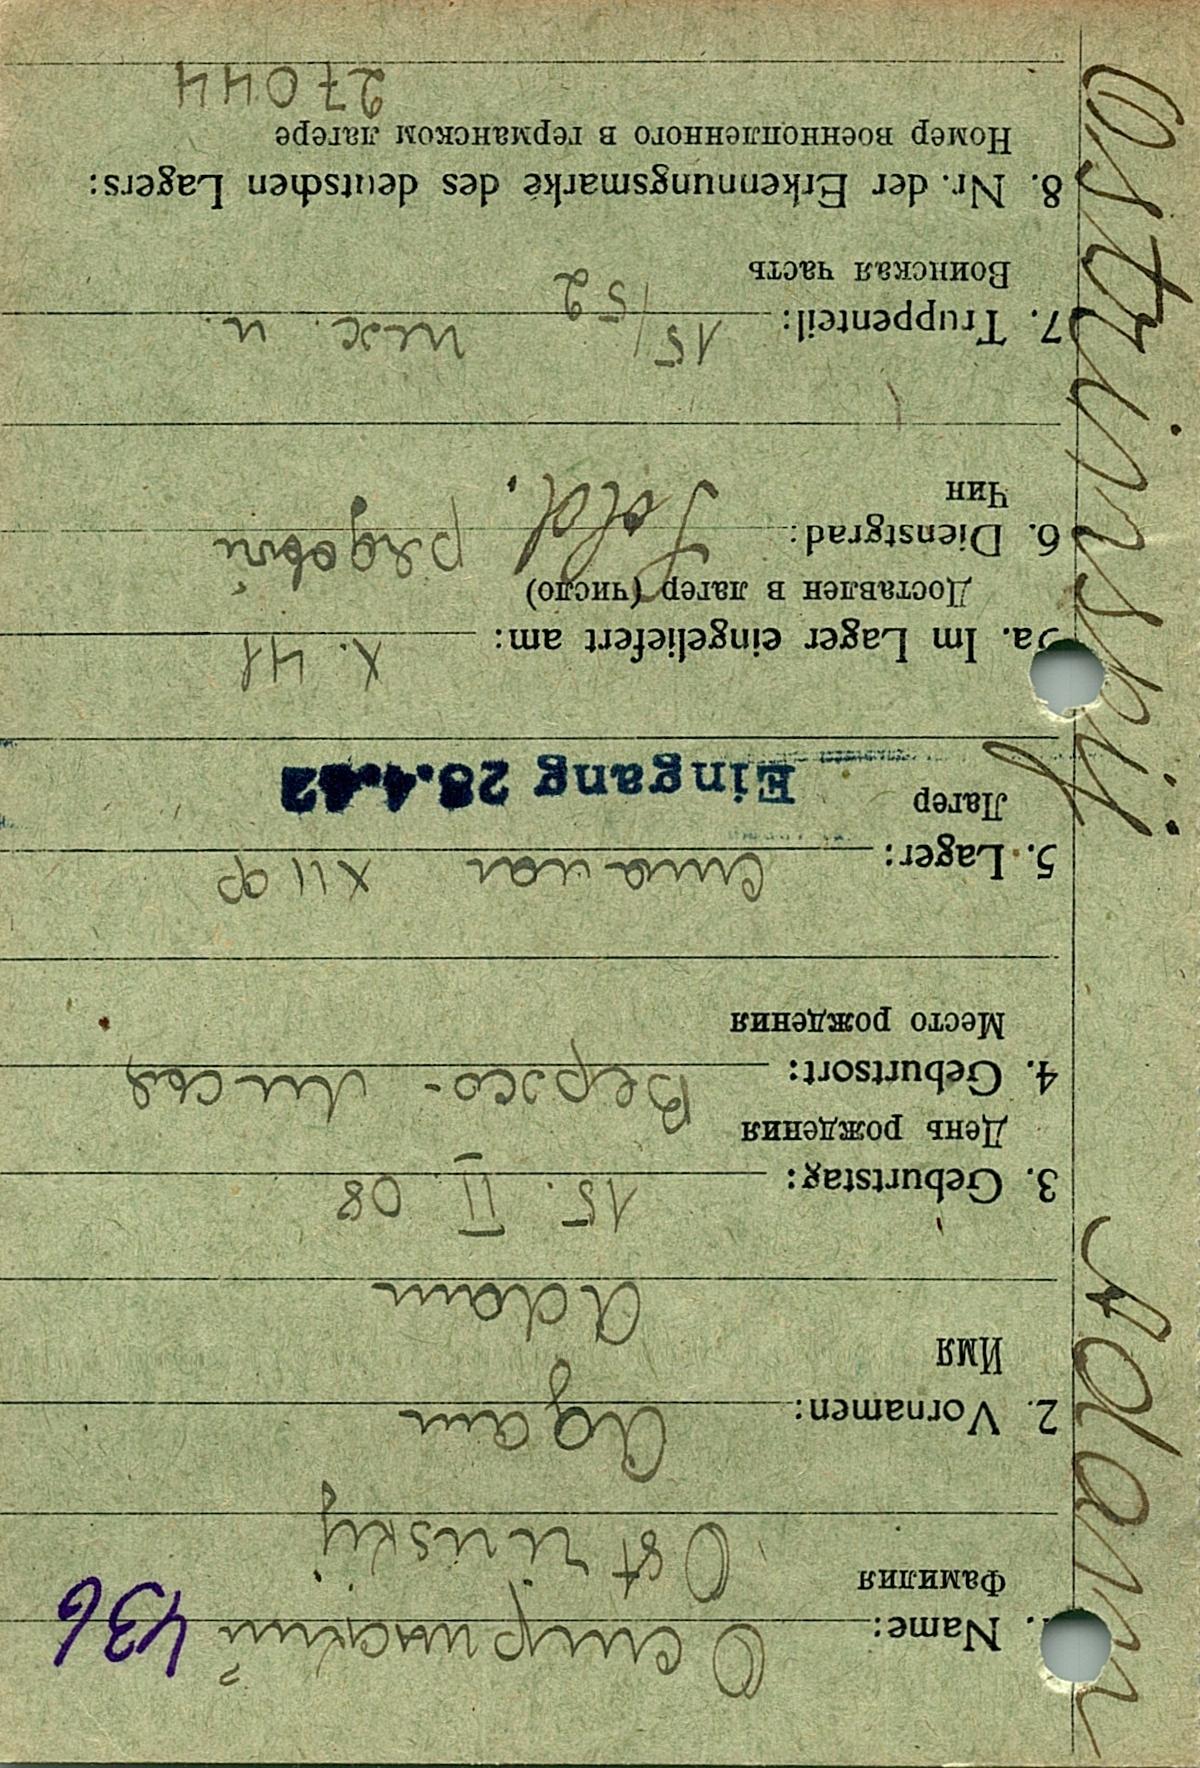 Ostrinskij Adam
1. Name: Остринский 436
Фамилия
Ostrinskij
2. Vornamen: Адам
Имя
Adam
3. Geburtstag: 15. II. 08
День рождения
4. Geburtsort: Верхо-
Место рождения
5. Lager: XII
Лагер
Eingang 28.4.42
5a. Im Lager eingeliefert am: X. 41
Доставлен в лагер (число)
6. Dienstgrad: Sold. рядовой
Чин
7. Truppenteil: 15/52
Воинская часть
8. Nr. der Erkennungsmarke des deutschen Lagers:
Номер военнопленного в германском лагере
27044